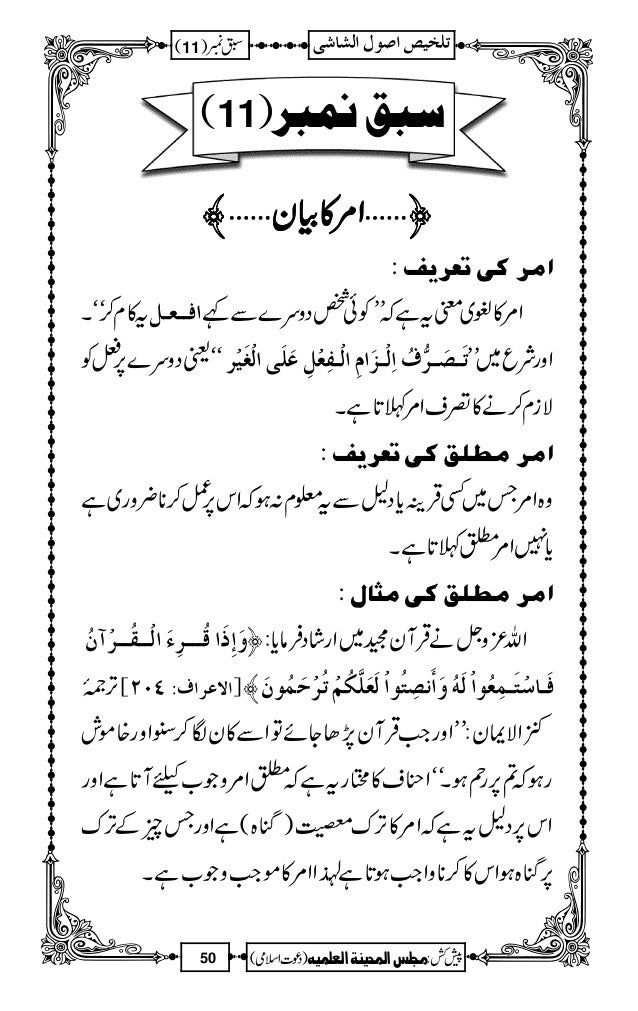 تلخیص اصول الشاشی سبق نمبر (11)
سبق نمبر (11)
﴿......امر کا بیان......﴾
امر کی تعریف :
امر کا لغوی معنی یہ ہے کہ ’’کوئی شخص دوسرے سے کہے افعل یہ کام کر‘‘۔
اور شرع میں ’’تَصَرُّفُ اِلْزَامِ الْفِعْلِ عَلَى الْغَيْرِ‘‘ یعنی دوسرے پر فعل کو
لازم کرنے کا تصرف امر کہلاتا ہے۔
امر مطلق کی تعریف :
وہ امر جس میں کسی قرینہ یا دلیل سے یہ معلوم نہ ہو کہ اس پر عمل کرنا ضروری ہے
یا نہیں امر مطلق کہلاتا ہے۔
امر مطلق کی مثال :
اللہ عزوجل نے قرآن مجید میں ارشاد فرمایا: ﴿وَإِذَا قُرِءَ الْقُرْآنُ
فَاسْتَمِعُواْ لَهُ وَأَنصِتُواْ لَعَلَّكُمْ تُرْحَمُونَ﴾ [الاعراف: ٢٠٤] ترجمۂ
کنز الایمان: ’’اور جب قرآن پڑھا جائے تو اسے کان لگا کر سنو اور خاموش
رہو کہ تم پر رحم ہو۔‘‘ احناف کا مختار یہ ہے کہ مطلق امر وجوب کیلئے آتا ہے اور
اس پر دلیل یہ ہے کہ امر کا ترک معصیت (گناہ) ہے اور جس چیز کے ترک
پر گناہ ہو اس کا کرنا واجب ہوتا ہے لہذا امر کا موجب وجوب ہے۔
پیش کش: مجلس المدینة العلمیه (دعوت اسلامی) 50